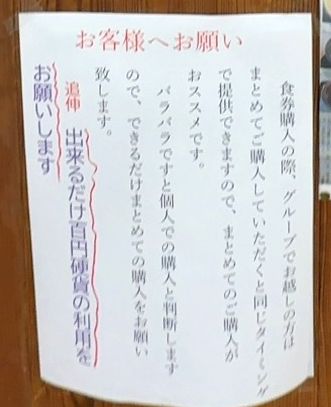 お客様へお願い
食券購入の際、グループでお越しの方は
まとめてご購入していただくと同じタイミング
で提供できますので、まとめてのご購入が
おススメです。
バラバラですと個人での購入と判断します
ので、できるだけまとめての購入をお願い
致します。
追伸 出来るだけ百円硬貨の利用を
お願いします